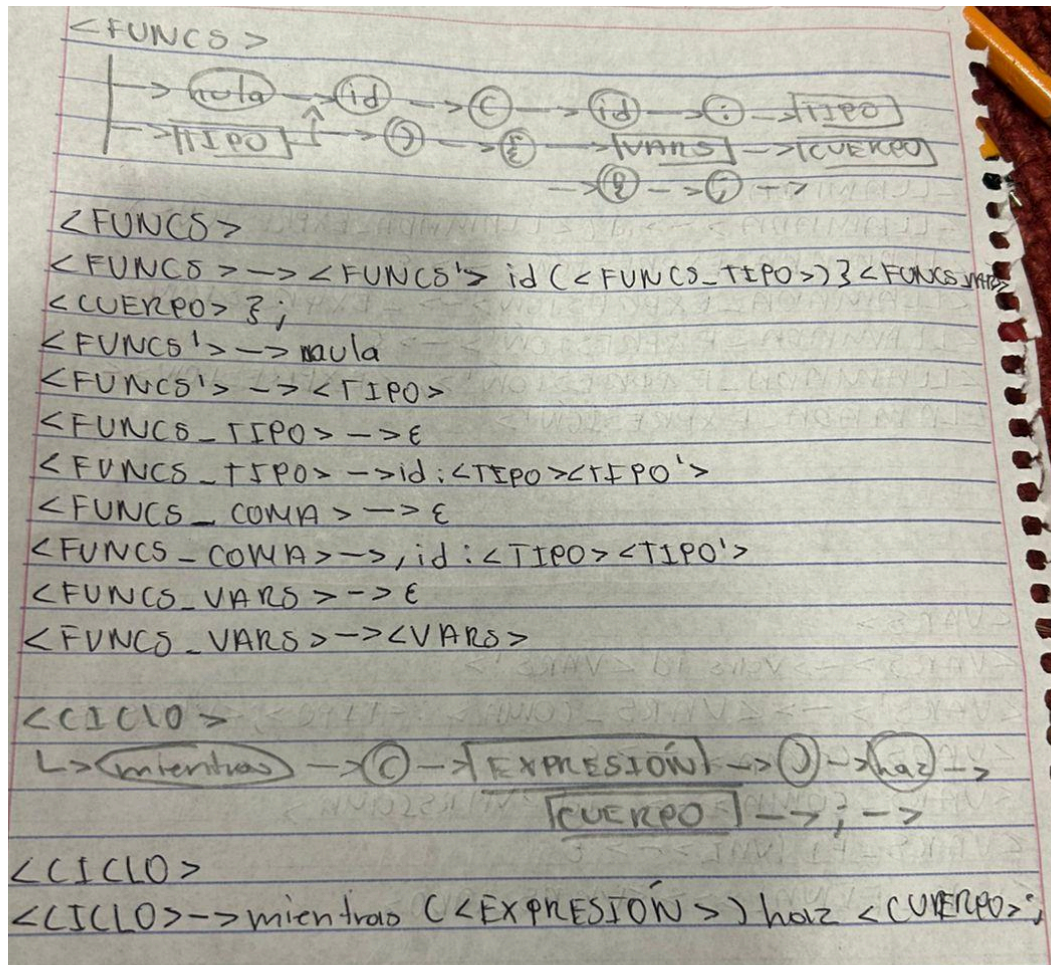 <FUNCS>
-> nula -> id -> ( -> id -> : -> TIPO
-> TIPO -> ) -> { -> VARS -> CUERPO
-> } -> ; ->
<FUNCS>
<FUNCS> -> <FUNCS'> id (<FUNCS_TIPO>) } <FUNCS_VARS>
<CUERPO> } ;
<FUNCS'> -> naula
<FUNCS'> -> <TIPO>
<FUNCS_TIPO> -> ε
<FUNCS_TIPO> -> id : <TIPO><TIPO'>
<FUNCS_COMA> -> ε
<FUNCS_COMA> -> , id : <TIPO><TIPO'>
<FUNCS_VARS> -> ε
<FUNCS_VARS> -> <VARS>
<CICLO>
-> mientras -> ( -> EXPRESIÓN -> ) -> haz ->
CUERPO -> ; ->
<CICLO>
<CICLO> -> mientras (<EXPRESIÓN>) haz <CUERPO> ;